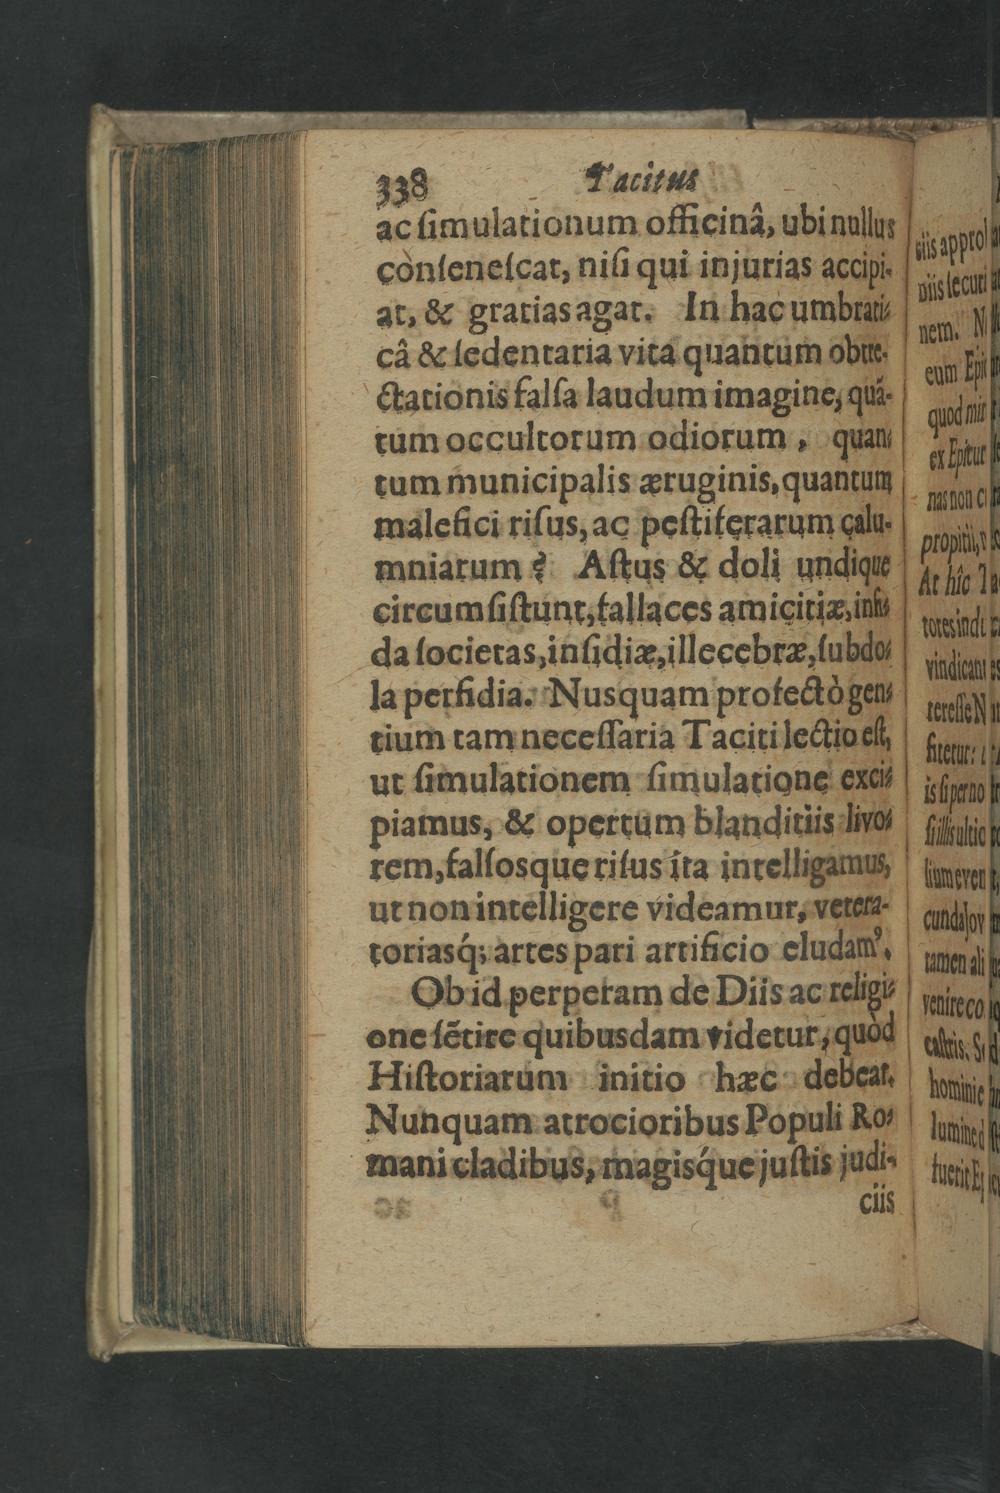 338 Tacitus
ac ſimulationum officinâ, ubi nullus
conſeneſcat, niſi qui injurias accipi-
at, & gratias agat. In hac umbrati-
câ & ſedentaria vita quantum obtre-
ctationis falſa laudum imagine, quã-
tum occultorum odiorum, quan-
tum municipalis æruginis, quantum
malefici riſus, ac peſtiferarum calu-
mniarum? Aſtus & doli undique
circumſiſtunt, fallaces amicitiæ, infi-
da ſocietas, inſidiæ, illecebræ, ſubdo-
la perfidia. Nusquam profectò gen-
tium tam neceſſaria Taciti lectio eſt,
ut ſimulationem ſimulatione exci-
piamus, & opertum blanditiis livo-
rem, falſosque riſus ita intelligamus,
ut non intelligere videamur, vetera-
toriasq́; artes pari artificio eludamꝰ.
Ob id perperam de Diis ac religi-
one ſẽtire quibusdam videtur, quòd
Hiſtoriarum initio hæc debeat.
Nunquam atrocioribus Populi Ro-
mani cladibus, magisq́ue juſtis judi-
ciis
nem. N
eum Epi
quod mir
ex Epicur
nas non c
propitii,
At hîc
totes ind
vindicant
tereſſe N
fitetur:
is ſi per no
ſi illis ultio
lium even
cunda Jov
tamen ali
venire co
caſtris. S
hominie
lumine d
fuerit E